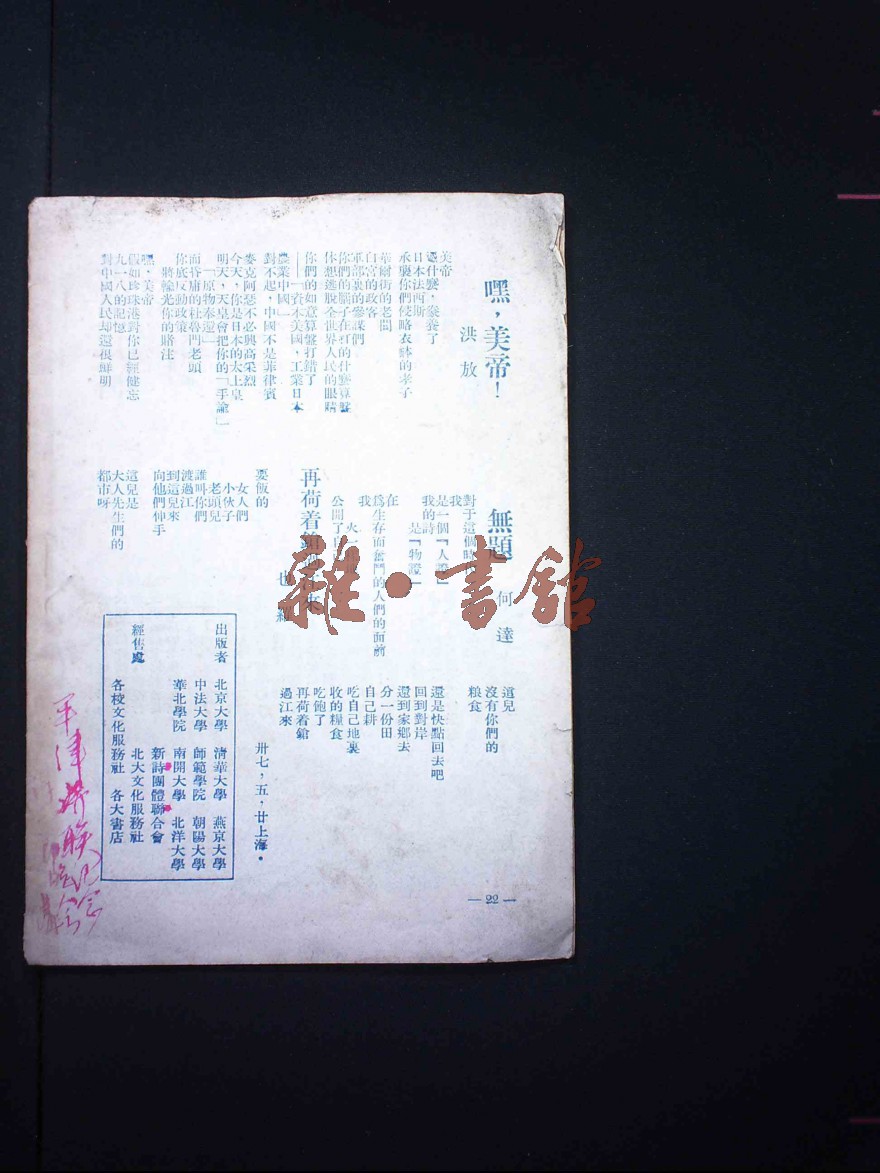 嘿，美帝！
洪放
美帝
憑什麽，豢養了
日本法西斯
承襲你們侵略衣缽的孝子
華爾街的老闆
白宮的政客
軍部裏的參謀們
你們的腦子在打的什麽算盤
休想逃脫全世界人民的眼睛
你們的如意算盤打錯了
——「資本美國，工業日本
農業中國」
對不起，中國不是菲律賓
麥克阿瑟不必興高采烈
今天，你是日本的太上皇
明天，天皇會把你的「手諭」
「原物奉還」
而昏庸的杜魯門老頭
你底反動政策
將輸光你的賭注
嘿，美帝
假如珍珠港對你已經健忘
九一八的記憶
對中國人民却還很鮮明
無題
何達
對于這個時
我
是一個「人證」
我的詩
是「物證」
在
爲生存而奮鬥的人們的面前
我
火一
公開了
再荷着鎗過江來
也羅
要飯的
女人們
小伙子
老頭兒
誰叫你們
渡過江
到這兒來
向他們伸手
這兒是
大人先生們的
都市呀
這兒
沒有你們的
粮食
還是快點回去吧
回到對岸
還到家鄉去
分一份田
自己耕
吃自己地裏
收的糧食
吃飽了
再荷着鎗
過江來
卅七，五，廿上海。
出版者
北京大學 清華大學 燕京大學
中法大學 師範學院 朝陽大學
華北學院 南開大學 北洋大學
新詩團體聯合會
經售處
北大文化服務社
各校文化服務社 各大書店
— 22 —
雜·書館